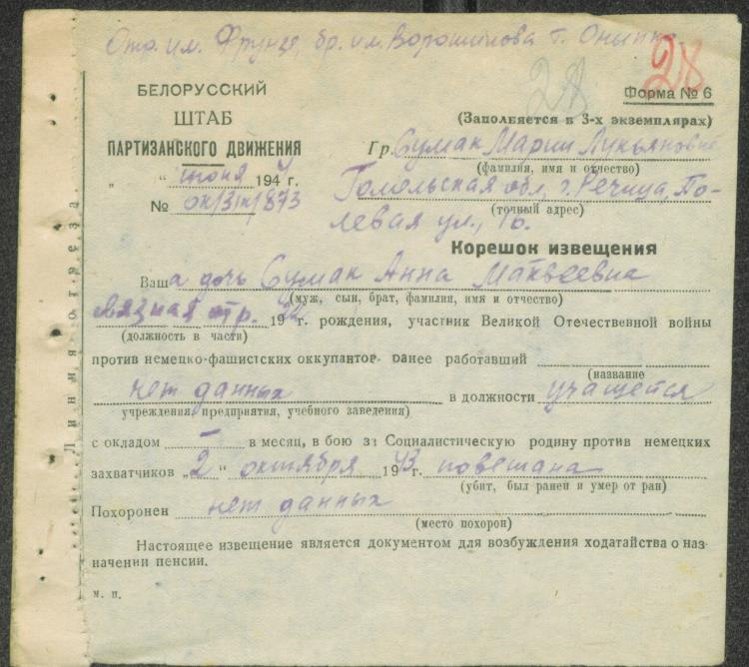 Отр. им. Фрунзе, бр. им. Ворошилова т. Онып
28
28
БЕЛОРУССКИЙ
ШТАБ
ПАРТИЗАНСКОГО ДВИЖЕНИЯ
" " июня 194 г.
№ ок/3/к/873
Форма № 6
(Заполняется в 3-х экземплярах)
Гр. Сумак Марии Лукьяновне
(фамилия, имя и отчество)
Гомельская обл, г. Речица, По-
(точный адрес)
левая ул.,
Корешок извещения
Ваша дочь Сумак Анна Матвеевна
(муж, сын, брат, фамилия, имя и отчество)
связная отр. 19 г. рождения, участник Великой Отечественной войны
(должность в части)
против немецко-фашистских оккупантов ранее работавший
(название
нет данных в должности учащейся
учреждения, предприятия, учебного заведения)
с окладом — в месяц, в бою за Социалистическую родину против немецких
захватчиков „2" октября 1943 г. повешана
(убит, был ранен и умер от ран)
Похоронен нет данных
(место похорон)
Настоящее извещение является документом для возбуждения ходатайства о наз-
начении пенсии.
м. п.
Линия отреза